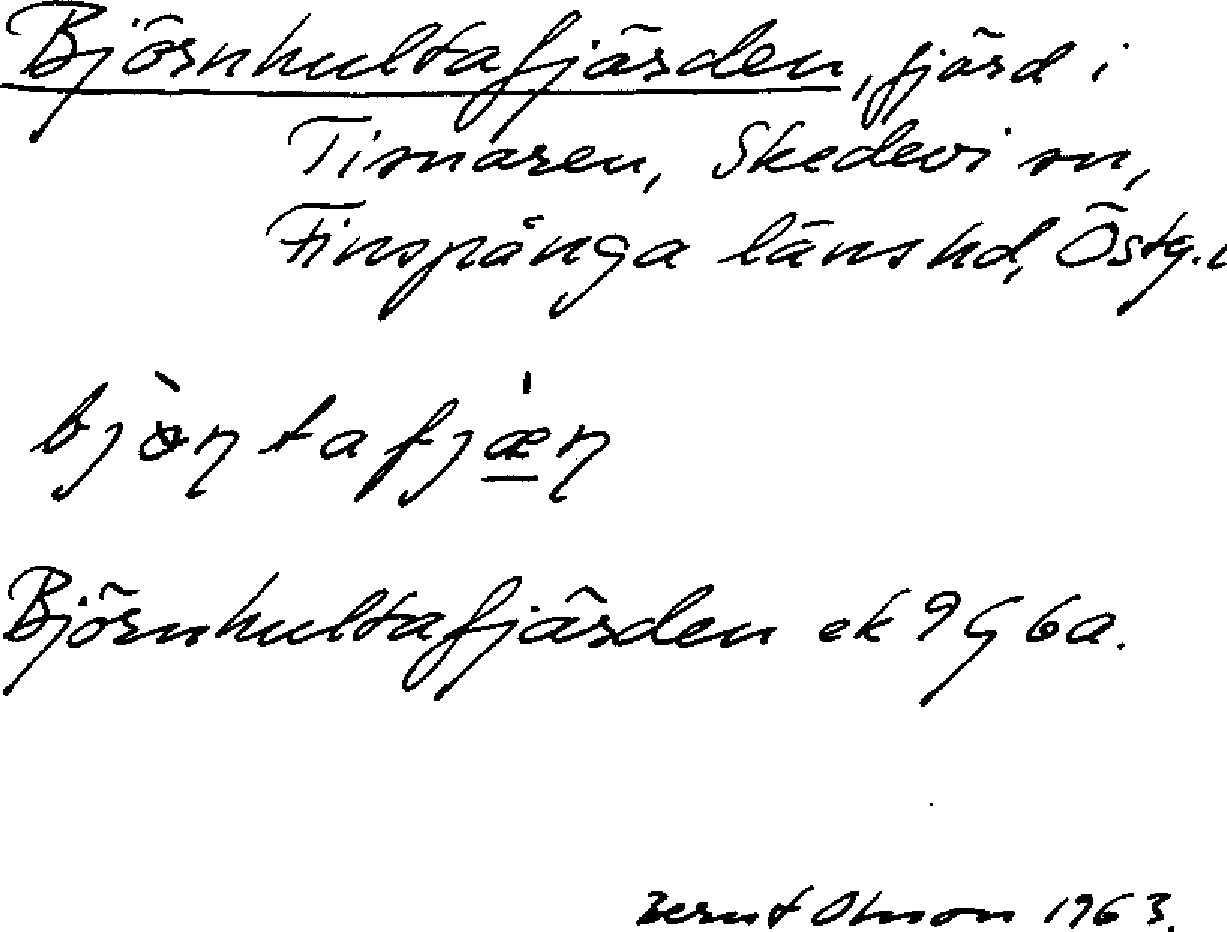 Björnhultafjärden, fjärd i
Tisnaren, Skedevi sn,
Finspånga länshd, Östg.l
bjɵ̀ɳtafjǽ̱ɳ
Björnhultafjärden ek 9G 6a.
Bernt Olsson 1963.